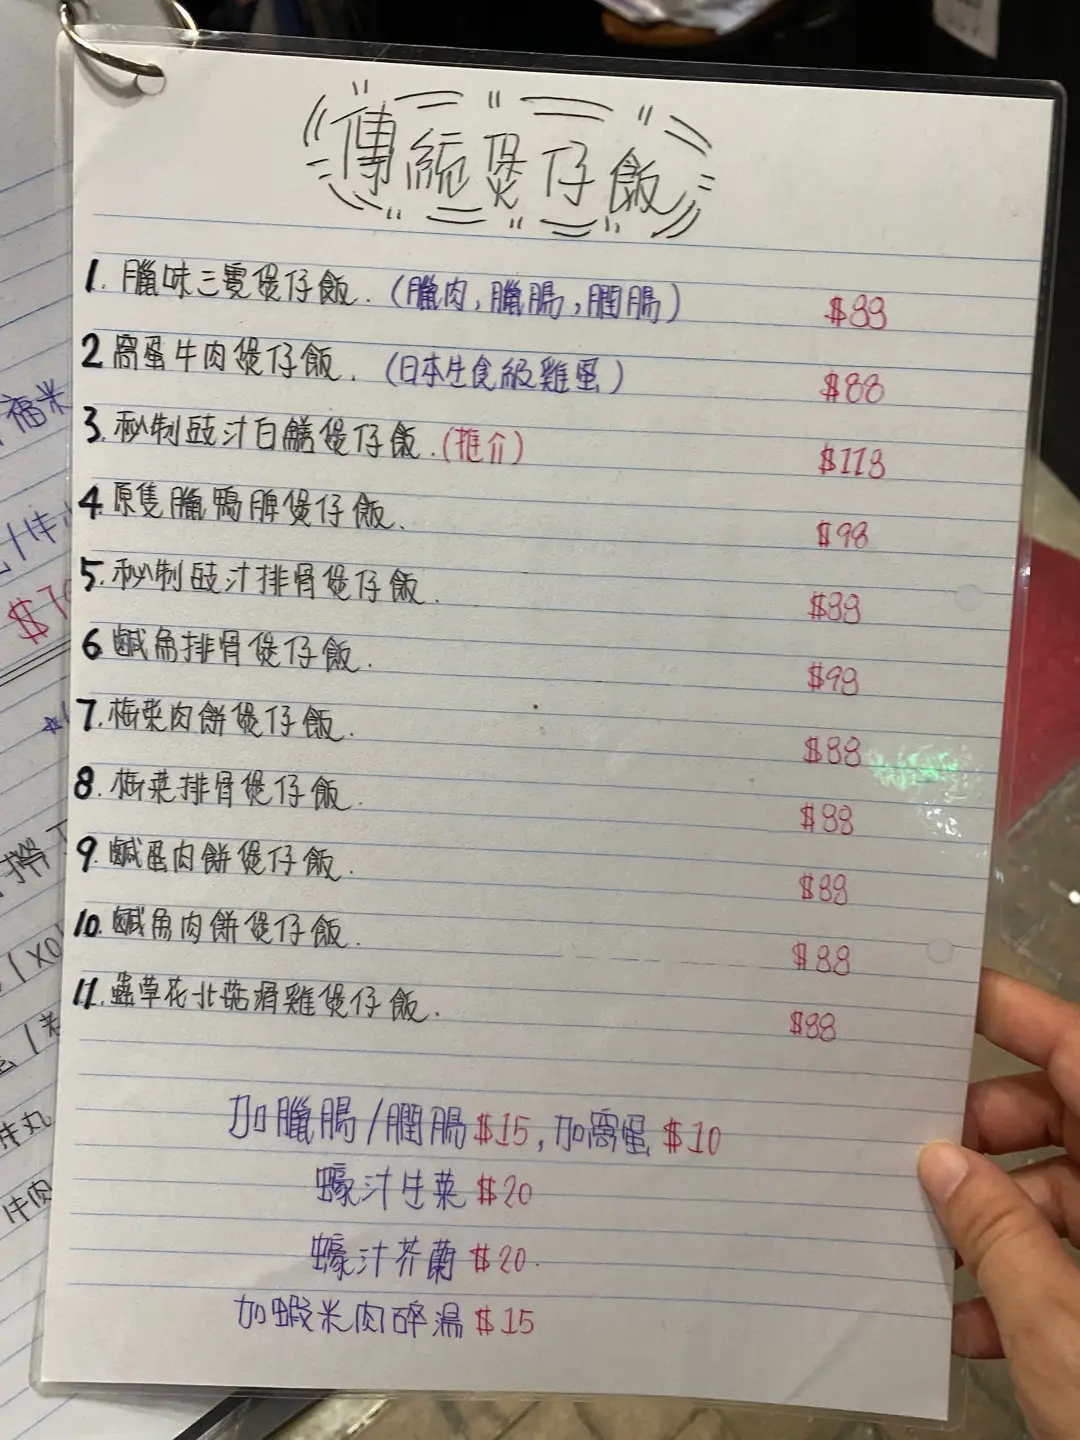 傳統煲仔飯
1. 臘味三寶煲仔飯. (臘肉, 臘腸, 膶腸) $88
2 窩蛋牛肉煲仔飯. (日本生食級雞蛋) $88
3. 秘制豉汁白鱔煲仔飯. (推介) $118
4. 原隻臘鴨脾煲仔飯. $98
5. 秘制豉汁排骨煲仔飯. $88
6. 鹹魚排骨煲仔飯. $98
7. 梅菜肉餅煲仔飯. $88
8. 梅菜排骨煲仔飯. $88
9. 鹹蛋肉餅煲仔飯. $88
10. 鹹魚肉餅煲仔飯. $88
11. 蟲草花北菇滑雞煲仔飯. $88
加臘腸/膶腸 $15, 加窩蛋 $10
蠔汁生菜 $20
蠔汁芥蘭 $20.
加蝦米肉碎湯 $15
福米
牛丸
牛肉